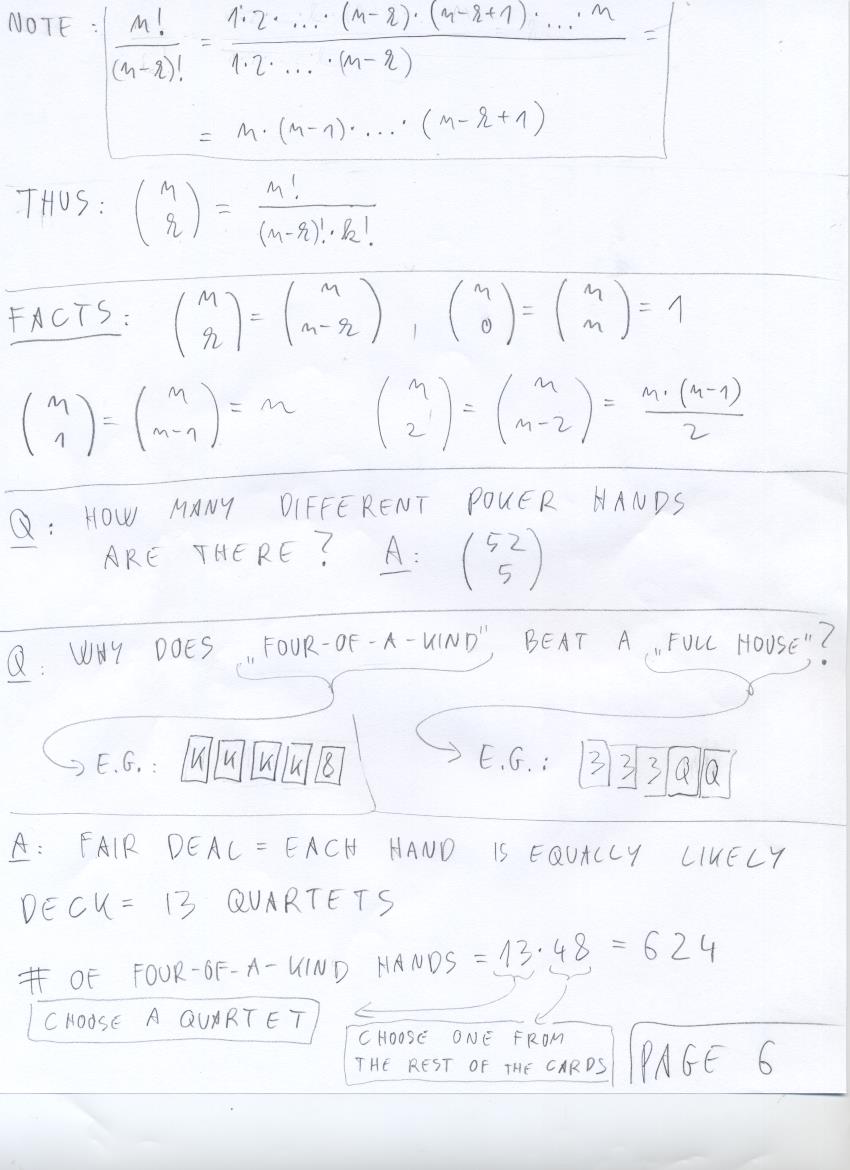 NOTE: n!/(n-k)! = 1·2·...·(n-k)·(n-k+1)·...·n / 1·2·...·(n-k) =
= n·(n-1)·...·(n-k+1)
THUS: (n k) = n!/(n-k)!·k!
FACTS: (n k) = (n n-k), (n 0) = (n n) = 1
(n 1) = (n n-1) = n (n 2) = (n n-2) = n·(n-1)/2
Q: HOW MANY DIFFERENT POKER HANDS
ARE THERE? A: (52 5)
Q: WHY DOES „FOUR-OF-A-KIND" BEAT A „FULL HOUSE"?
E.G.: K K K K 8 E.G.: 3 3 3 Q Q
A: FAIR DEAL = EACH HAND IS EQUALLY LIKELY
DECK = 13 QUARTETS
# OF FOUR-OF-A-KIND HANDS = 13·48 = 624
CHOOSE A QUARTET
CHOOSE ONE FROM
THE REST OF THE CARDS
PAGE 6